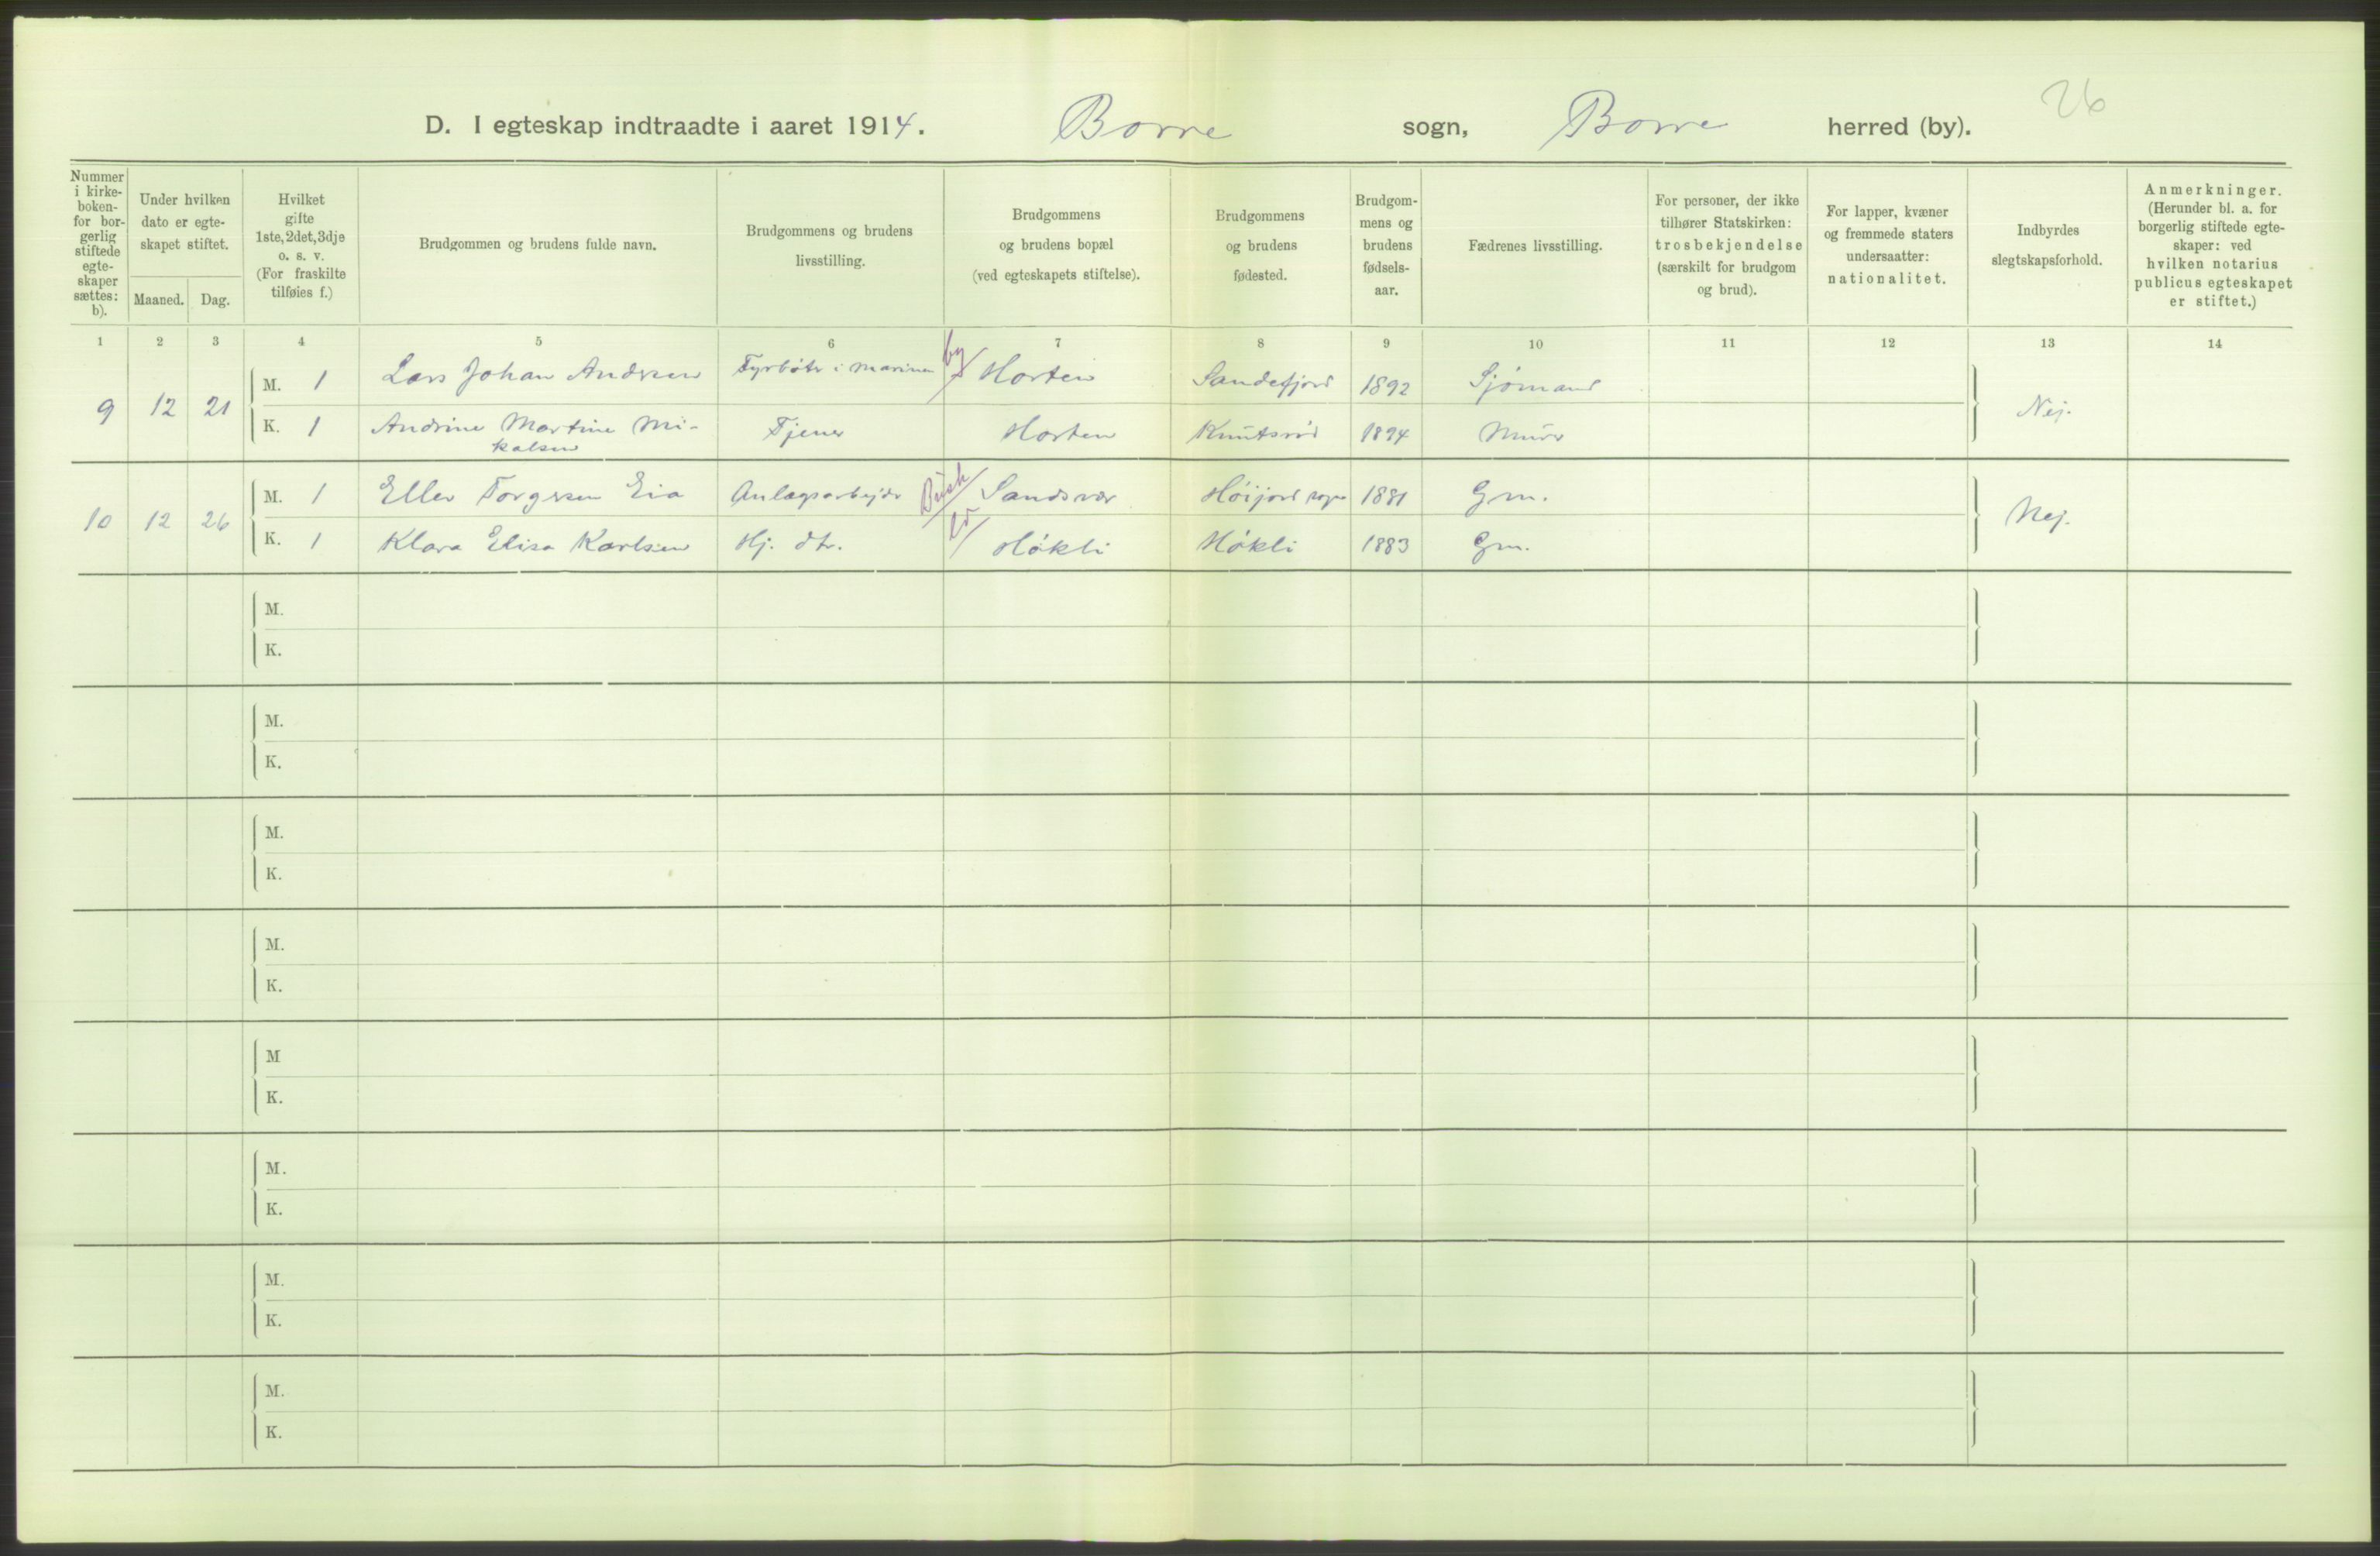 26
D. I egteskap indtraadte i aaret 1914. Borre sogn, Borre herred (by).
Nummer i kirke- boken- for bor- gerlig stiftede egte- skaper sættes: b).
Under hvilken dato er egte- skapet stiftet.
Maaned. Dag.
Hvilket gifte 1ste, 2det, 3dje o. s. v. (For fraskilte tilføies f.)
Brudgommen og brudens fulde navn.
Brudgommens og brudens livsstilling.
Brudgommens og brudens bopæl (ved egteskapets stiftelse).
Brudgommens og brudens fødested.
Brudgom- mens og brudens fødsels- aar.
Fædrenes livsstilling.
For personer, der ikke tilhører Statskirken: trosbekjendelse (særskilt for brudgom og brud).
For lapper, kvæner og fremmede staters undersaatter: nationalitet.
Indbyrdes slegtskapsforhold.
Anmerkninger. (Herunder bl. a. for borgerlig stiftede egte- skaper: ved hvilken notarius publicus egteskapet er stiftet.)
1 2 3 4 5 6 7 8 9 10 11 12 13 14
9 12 21 M. 1 Lars Johan Andersen Fyrbøter i marinen by Horten Sandefjord 1892 Sjømand Nej.
K. 1 Andrine Martine Mi-
kalsen Tjener Horten Knutsrød 1894 Murer
10 12 26 M. 1 Ellev Torgersen Eia Anlægsarbejder Busk Sandsvær Höijord sogn 1881 Gm. Nej.
K. 1 Klara Elisa Karlsen Hj. dtr. Høkli Høkli 1883 Gm.
M.
K.
M.
K.
M.
K.
M.
K.
M
K.
M.
K.
M.
K.
M.
K.